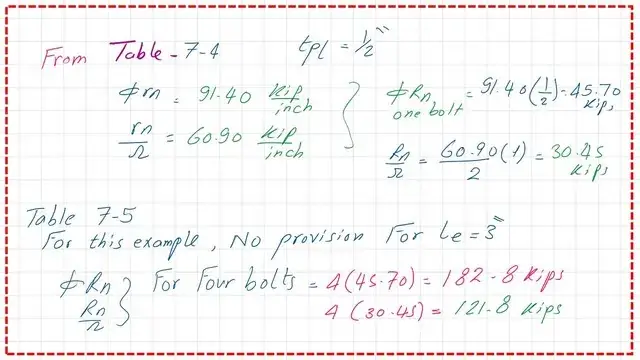 From Table-7-4 tpl = 1/2"
ϕrn = 91.40 kip/inch
rn/Ω = 60.90 kip/inch
ϕRn one bolt = 91.40(1/2) = 45.70 kips
Rn/Ω = 60.90(1)/2 = 30.45 kips
Table 7-5
For this example, No provision For le = 3"
ϕRn
Rn/Ω } For Four bolts = 4(45.70) = 182.8 kips
4(30.45) = 121.8 kips